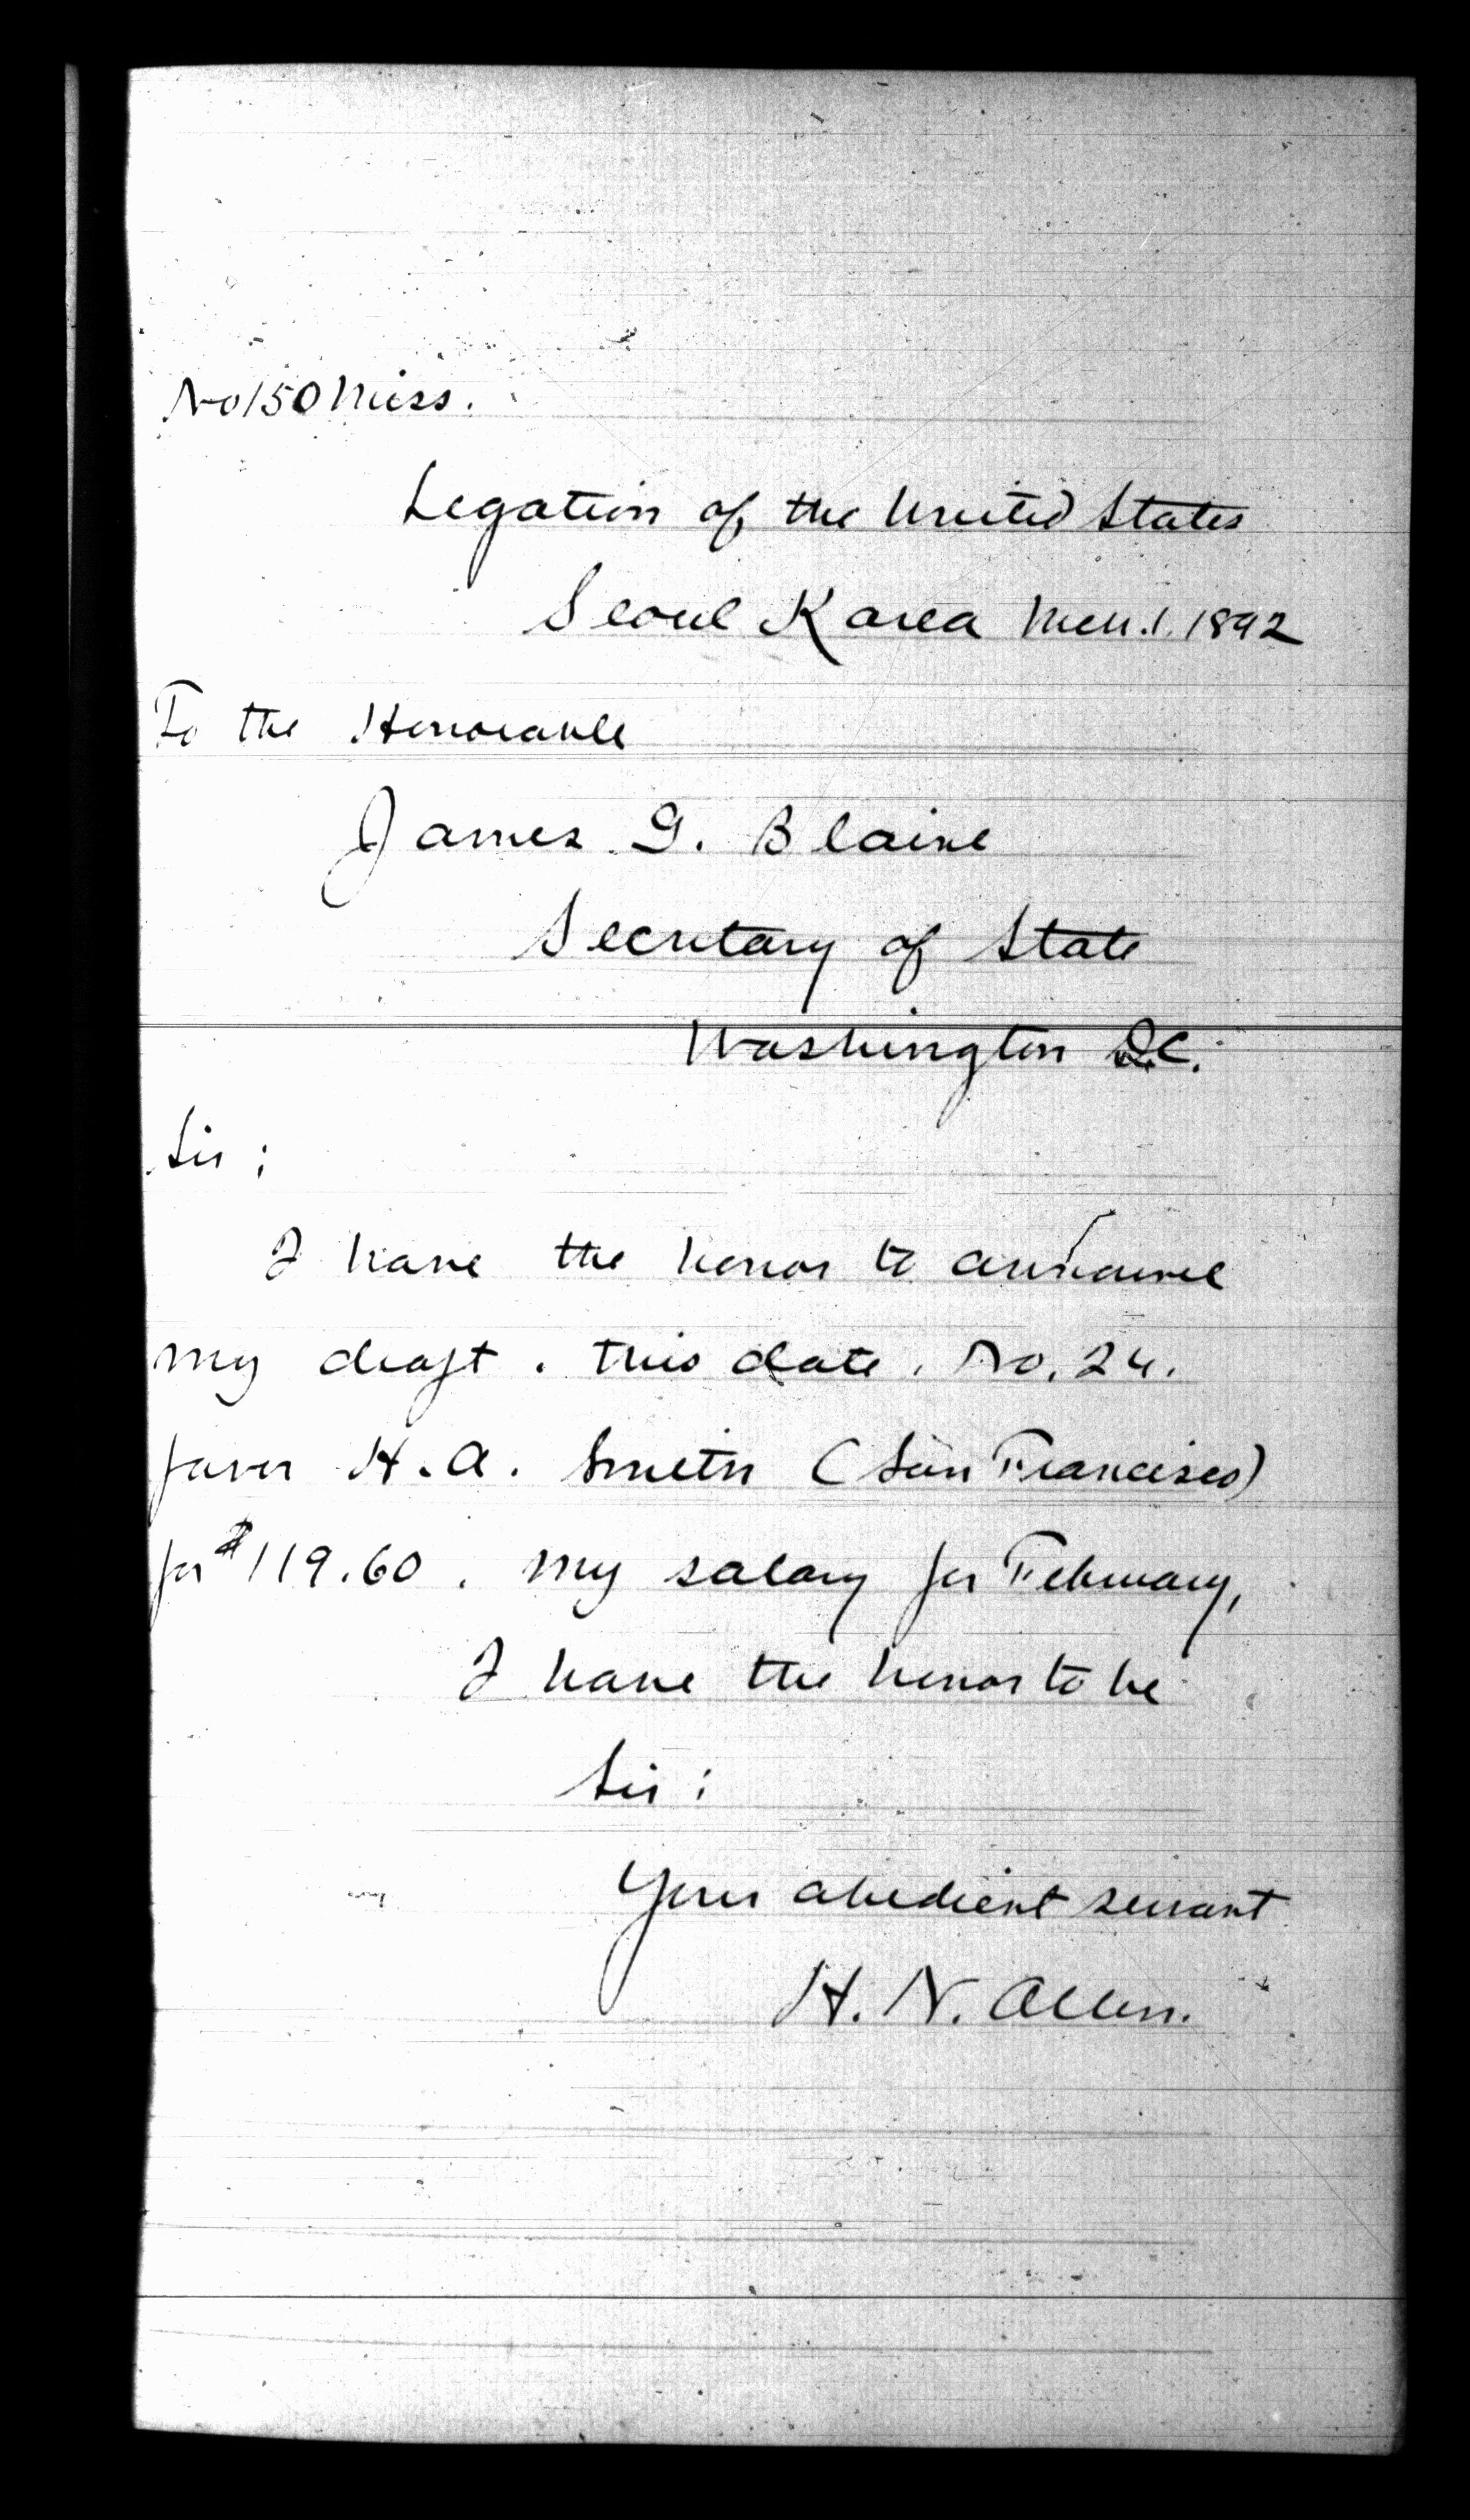 No 150 Miss.
Legation of the United States
Seoul Korea Mch. 1. 1892
To the Honorable
James G. Blaine
Secretary of State
Washington D.C.
Sir:
I have the honor to announce
my draft. this date. No. 24.
favor H. A. Smith (San Francisco)
for $119.60. my salary for February,
I have the honor to be
Sir:
Your obedient servant
H. N. Allen.